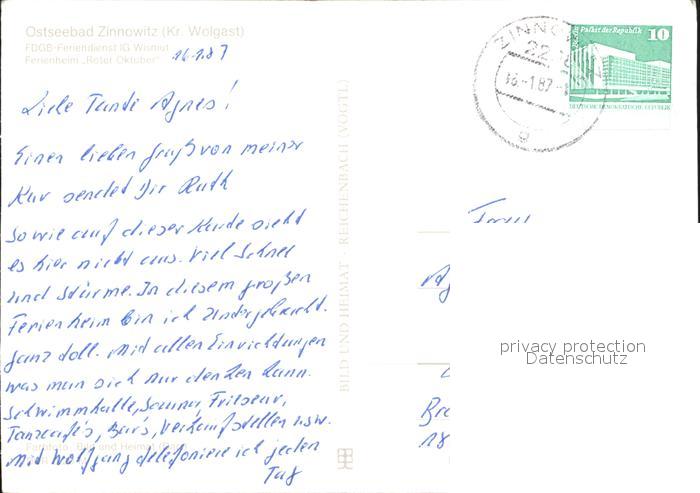 Ostseebad Zinnowitz (Kr. Wolgast)
FDGB-Feriendienst IG Wismut
Ferienheim „Roter Oktober"
16.1.87
Liebe Tante Agnes!
Einen lieben Gruß von meiner
Kur sendet Dir Ruth
Sowie auf dieser Karte sieht
es hier nicht aus. Viel Schnee
und Stürme. In diesem großen
Ferienheim bin ich untergebracht.
Ganz toll. Mit allen Einrichtungen
was man sich nur denken kann.
Schwimmhalle, Sauna, Friseur,
Tanzcafé's, Bar's, Verkaufsstellen usw.
Mit Wolfgang telefoniere ich jeden
Tag
BILD UND HEIMAT · REICHENBACH (VOGTL)
ZINNOWITZ
22
16.-1.87
g
Palast der Republik
10
DEUTSCHE DEMOKRATISCHE REPUBLIK
Frau
Ag
Bre
18
privacy protection
Datenschutz